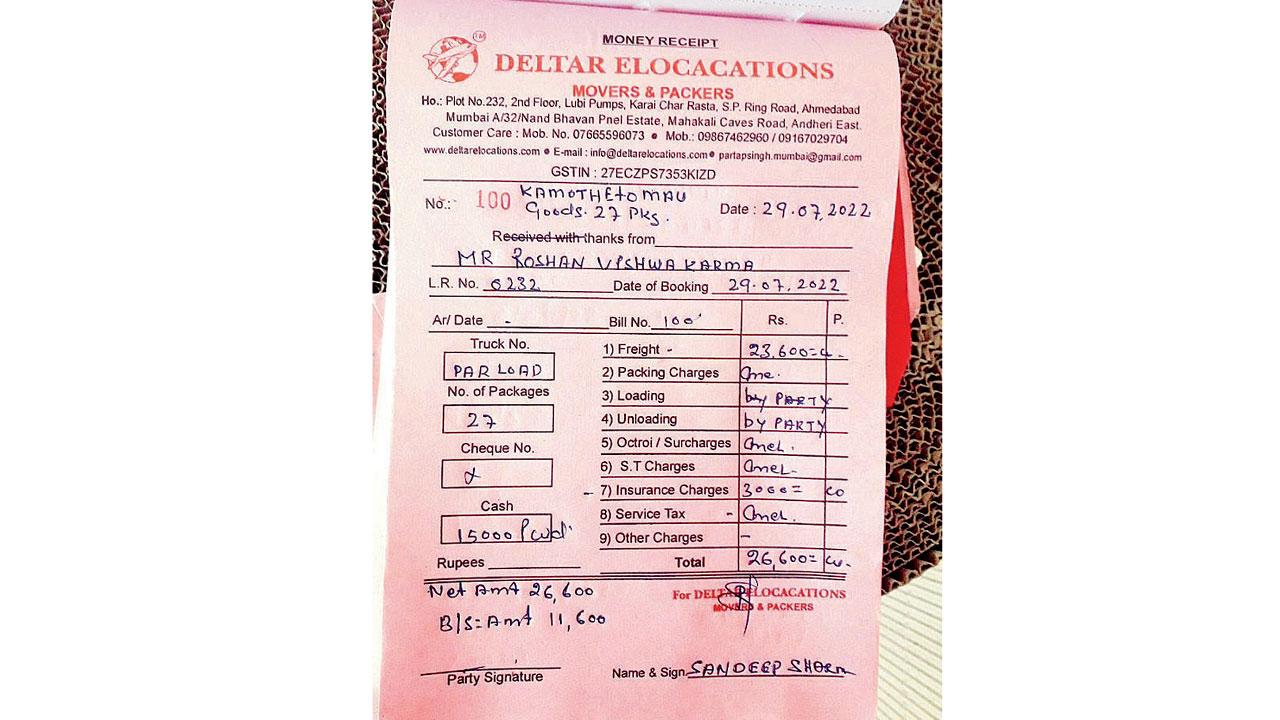 MONEY RECEIPT
TM
DELTAR ELOCACATIONS
MOVERS & PACKERS
Ho.: Plot No.232, 2nd Floor, Lubi Pumps, Karai Char Rasta, S.P. Ring Road, Ahmedabad
Mumbai A/32/Nand Bhavan Pnel Estate, Mahakali Caves Road, Andheri East.
Customer Care : Mob. No. 07665596073 • Mob.: 09867462960 / 09167029704
www.deltarelocations.com • E-mail : info@deltarelocations.com • partapsingh.mumbai@gmail.com
GSTIN : 27ECZPS7353KIZD
No.: 100 KAMOTHE to MAU
Goods. 27 PKs. Date : 29.07.2022
Received with thanks from
MR ROSHAN VISHWAKARMA
L.R. No. 0232 Date of Booking 29.07.2022
Ar/ Date - Bill No. 100 Rs. P.
Truck No. PAR LOAD
No. of Packages 27
Cheque No.
Cash 15000
Rupees
1) Freight - 23,600=
2) Packing Charges
3) Loading by PARTY
4) Unloading by PARTY
5) Octroi / Surcharges
6) S.T Charges
7) Insurance Charges 3000=
8) Service Tax -
9) Other Charges -
Total 26,600=
Net Amt 26,600
B/S=Amt 11,600
For DELTAR ELOCACATIONS
MOVERS & PACKERS
Party Signature
Name & Sign. SANDEEP